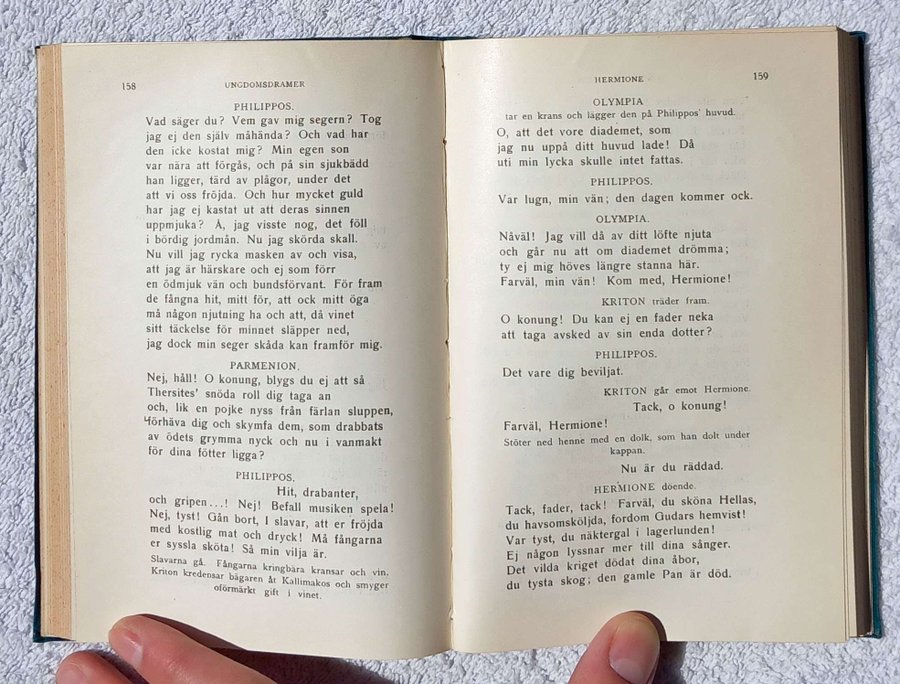 158
UNGDOMSDRAMER
PHILIPPOS.
Vad säger du? Vem gav mig segern? Tog
jag ej den själv måhända? Och vad har
den icke kostat mig? Min egen son
var nära att förgås, och på sin sjukbädd
han ligger, tärd av plågor, under det
att vi oss fröjda. Och hur mycket guld
har jag ej kastat ut att deras sinnen
uppmjuka? Å, jag visste nog, det föll
i bördig jordmån. Nu jag skörda skall.
Nu vill jag rycka masken av och visa,
att jag är härskare och ej som förr
en ödmjuk vän och bundsförvant. För fram
de fångna hit, mitt för, att ock mitt öga
må någon njutning ha och att, då vinet
sitt täckelse för minnet släpper ned,
jag dock min seger skåda kan framför mig.
PARMENION.
Nej, håll! O konung, blygs du ej att så
Thersites' snöda roll dig taga an
och, lik en pojke nyss från färlan sluppen,
förhäva dig och skymfa dem, som drabbats
av ödets grymma nyck och nu i vanmakt
för dina fötter ligga?
PHILIPPOS.
Hit, drabanter,
och gripen...! Nej! Befall musiken spela!
Nej, tyst! Gån bort, I slavar, att er fröjda
med kostlig mat och dryck! Må fångarna
er syssla sköta! Så min vilja är.
Slavarna gå. Fångarna kringbära kransar och vin.
Kriton kredensar bägaren åt Kallimakos och smyger
oförmärkt gift i vinet.
HERMIONE
159
OLYMPIA
tar en krans och lägger den på Philippos' huvud.
O, att det vore diademet, som
jag nu uppå ditt huvud lade! Då
uti min lycka skulle intet fattas.
PHILIPPOS.
Var lugn, min vän; den dagen kommer ock.
OLYMPIA.
Nåväl! Jag vill då av ditt löfte njuta
och går nu att om diademet drömma;
ty ej mig höves längre stanna här.
Farväl, min vän! Kom med, Hermione!
KRITON träder fram.
O konung! Du kan ej en fader neka
att taga avsked av sin enda dotter?
PHILIPPOS.
Det vare dig beviljat.
KRITON går emot Hermione.
Tack, o konung!
Farväl, Hermione!
Stöter ned henne med en dolk, som han dolt under
kappan.
Nu är du räddad.
HERMIONE döende.
Tack, fader, tack! Farväl, du sköna Hellas,
du havsomsköljda, fordom Gudars hemvist!
Var tyst, du näktergal i lagerlunden!
Ej någon lyssnar mer till dina sånger.
Det vilda kriget dödat dina åbor,
du tysta skog; den gamle Pan är död.